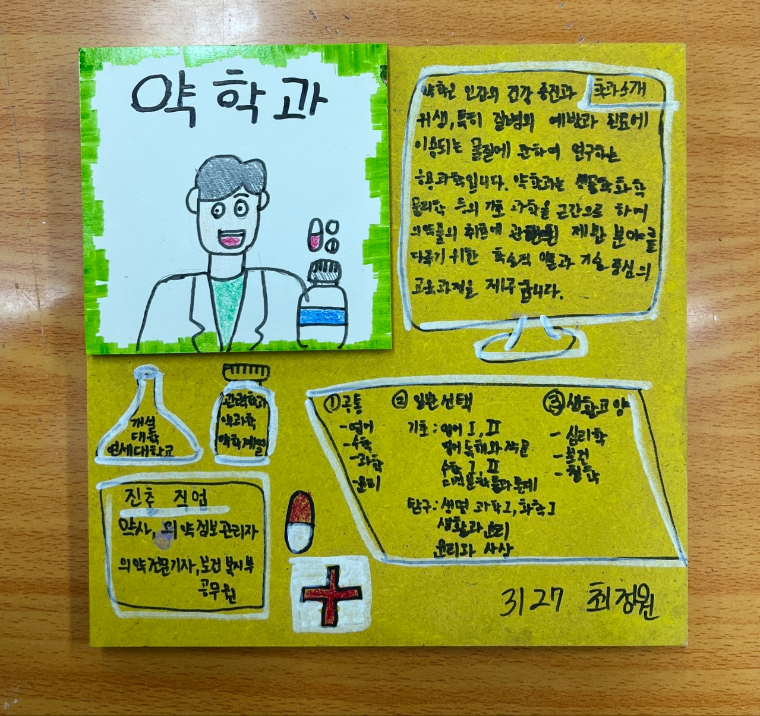 약학과
학과소개
약학은 인간의 건강 증진과
위생, 특히 질병의 예방과 진료에
이용되는 물질에 관하여 연구하는
응용과학입니다. 약학과는 생물학 화학
물리학 등의 기초 과학을 근간으로 하여
의약품의 취급에 관련된 제반 분야를
다루기 위한 특소적 약물과 기술 중심의
교육과정을 제공합니다.
개설
대학
연세대학교
관련학과
약과학과
약학계열
진출 직업
약사, 의약정보관리자
의약전문기자, 보건 복지부
공무원
① 공통
- 영어
- 수학
- 과학
- 윤리
② 일반선택
기초: 영어 I, II
영어 독해와 작문
수학 I, II
미적분학 확률과 통계
탐구: 생명 과학 I, 화학 I
생활과 윤리
윤리와 사상
③ 생활교양
- 심리학
- 보건
- 철학
3127 최정원